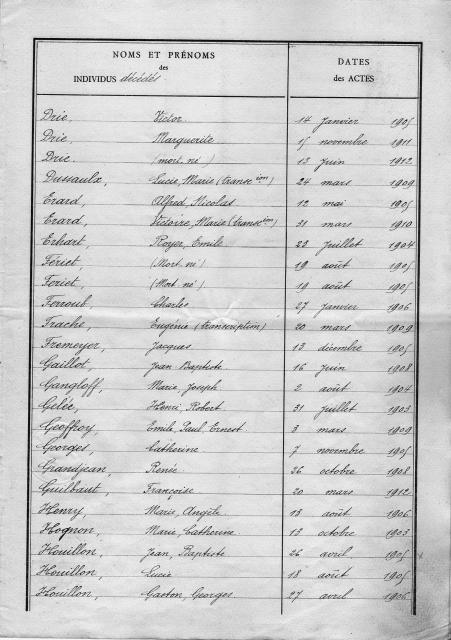 NOMS ET PRÉNOMS DATES
des
INDIVIDUS décédés. des ACTES
Drie, Victor 14 janvier 1905
Drie, Marguerite 15 novembre 1911
Drie, (mort-né) 13 juin 1912
Dussaulx, Lucie, Marie (transc ion) 24 mars 1909
Erard, Alfred, Nicolas 12 mai 1905
Erard, Victoire, Marie (transc tion) 31 mars 1910
Erhart, Royer, Emile 23 juillet 1904
Fériet (Mort-né) 19 août 1905
Feriet, (Mort-né) 19 août 1905
Ferroul, Charles 27 janvier 1906
Frache, Eugénie (transcription) 20 mars 1909
Fremeyer, Jacques 13 décembre 1905
Gaillot, Jean Baptiste 16 juin 1908
Gangloff, Marie, Joseph 2 août 1904
Gelée, Henri, Robert 31 juillet 1903
Geoffroy, Emile, Paul, Ernest 3 mars 1909
Georges, Catherine 7 novembre 1905
Grandjean, Renée 26 octobre 1908
Guilbaut, Françoise 20 mars 1912
Henry, Marie, Angèle 13 août 1906
Hognon, Marie, Catherine 13 octobre 1903
Houillon, Jean, Baptiste 26 avril 1905
Houillon, Lucie 18 août 1905
Houillon, Gaston, Georges 27 avril 1906